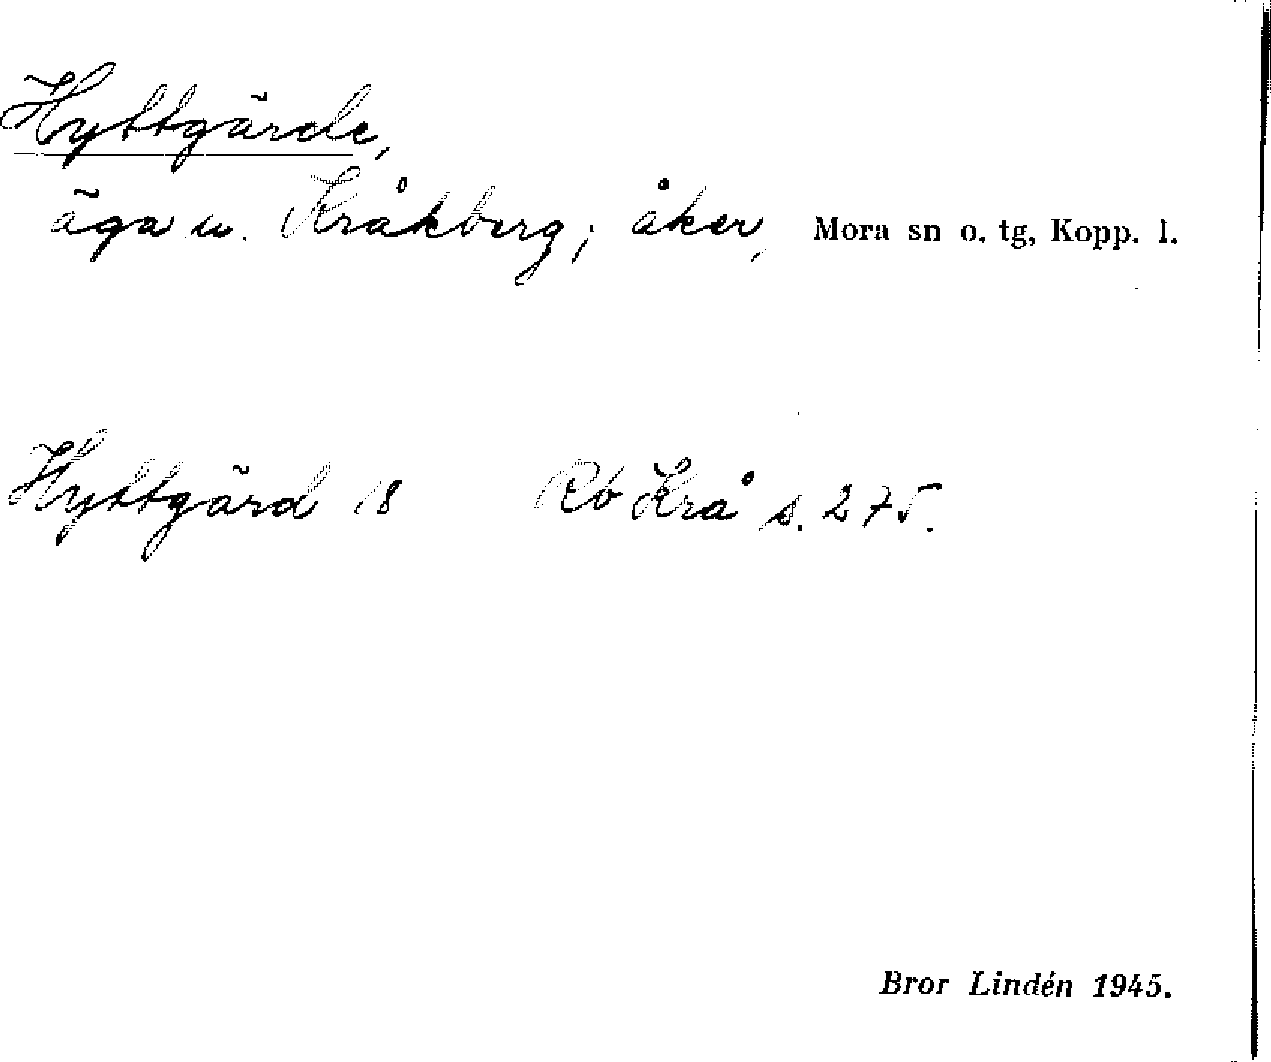 Hyttgärde,
äga u. Kråkberg; åker, Mora sn o. tg, Kopp. l.
Hyttgärd 18 Rb Krå s. 275.
Bror Lindén 1945.